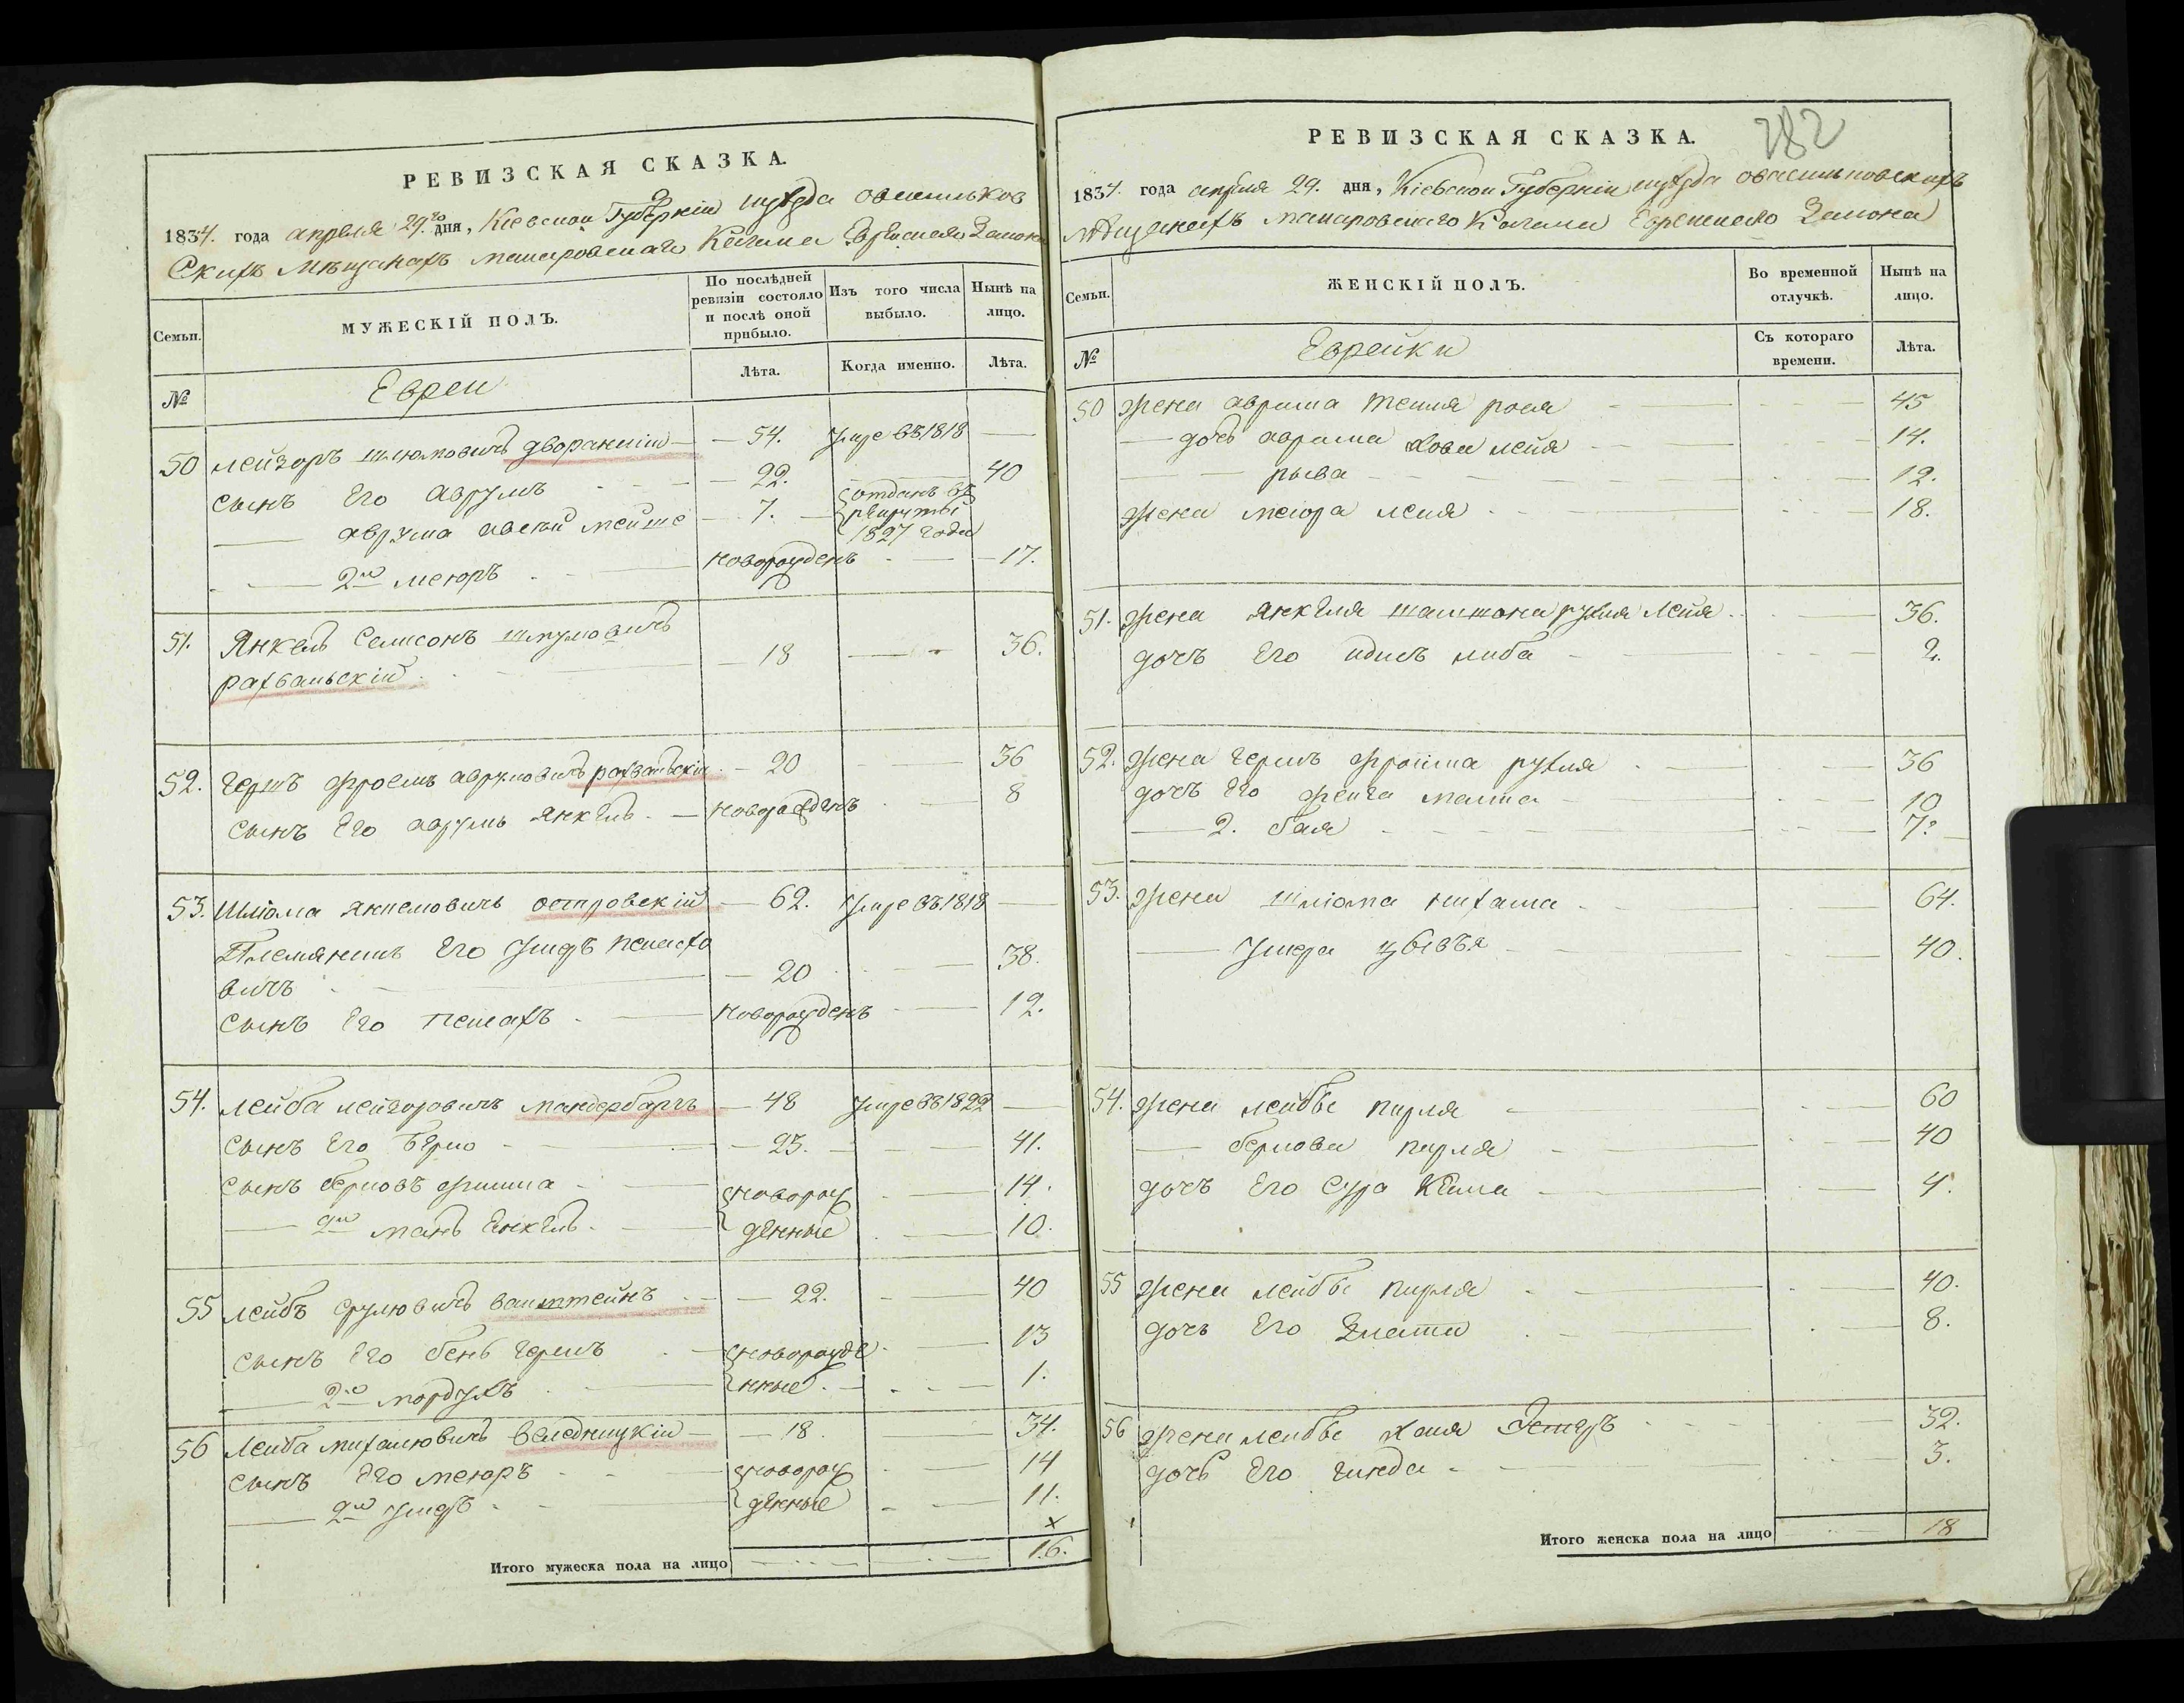 РЕВИЗСКАЯ СКАЗКА.
1834. года апреля 29.го дня, Кіевской Губерніи уѣзда о васильков
скихъ мѣщанахъ макаровскаго Кагала Еврейскаго Закона
Семьи.
МУЖЕСКІЙ ПОЛЪ.
По послѣдней ревизіи состояло и послѣ оной прибыло.
Изъ того числа выбыло.
Нынѣ на лицо.
№
Евреи
Лѣта.
Когда именно.
Лѣта.
50 лейзоръ шлюмовичъ дворакъ — 54. умре въ 1818 —
сынъ Его аврумъ — 22. 40
аврума овсей мейше — 7. отданъ въ
рекруты
1827 года
2й меюръ новорожденъ — 17.
51. Янкель Самсонъ шмулёвичъ
рахвальскій — 18 — 36.
52. гершъ фроимъ аврумовичъ рахвальскій — 20 — 36
сынъ Его аврумъ Янкель — новорожденъ — 8
53. Шліома якилювичъ островскій — 62. умре въ 1818 —
Племяникъ Его ушеръ пейсахо
вичъ — 20 — 38.
сынъ Его пейсахъ — новорожденъ — 12.
54. лейба лейзоровичъ мандербаргъ — 48 умре въ 1822 —
сынъ Его Берко — 23. — 41.
сынъ берковъ фишма — новорож — 14.
2й манъ Енкель — денные — 10.
55 лейбъ срулювичъ ваинштейнъ — 22. — 40
сынъ Его бень гершъ — новорожде — 13
2й мордухъ — нные. — 1.
56 Лейба михайлювичъ веледницкій — 18. — 34.
сынъ Его меюръ — новорож — 14
2й ушеръ — денные — 11.
х
Итого мужеска пола на лицо — 16.
РЕВИЗСКАЯ СКАЗКА.
282
1834. года апреля 29. дня, Кіевской Губерніи уѣзда о васильковскихъ
мѣщанахъ макаровскаго Кагала Еврейскаго Закона
Семьи.
ЖЕНСКІЙ ПОЛЪ.
Во временной отлучкѣ.
Нынѣ на лицо.
№
Еврейки
Съ котораго времени.
Лѣта.
50 жена аврума рося — 45
— дочь аврама хова лейя — 14.
рыва — 12.
жена меюра лейя — 18.
51. жена янкеля шамшона рухля лейя — 36.
дочъ Его идись либа — 2.
52. жена гершъ фройма рухля — 36
дочъ Его фейга малка — 10
— 2. бася — 7.
53. жена шліома нихама — 64.
— ушера цывъя — 40.
54. жена лейбы пирля — 60
— беркова пирля — 40
дочъ Его Сура — 4.
55 жена лейбы пирля — 40.
дочъ Его Злата — 8.
56 жена лейбы хая Эстеръ — 32.
дочъ Его гинда — 3.
Итого женска пола на лицо — 18